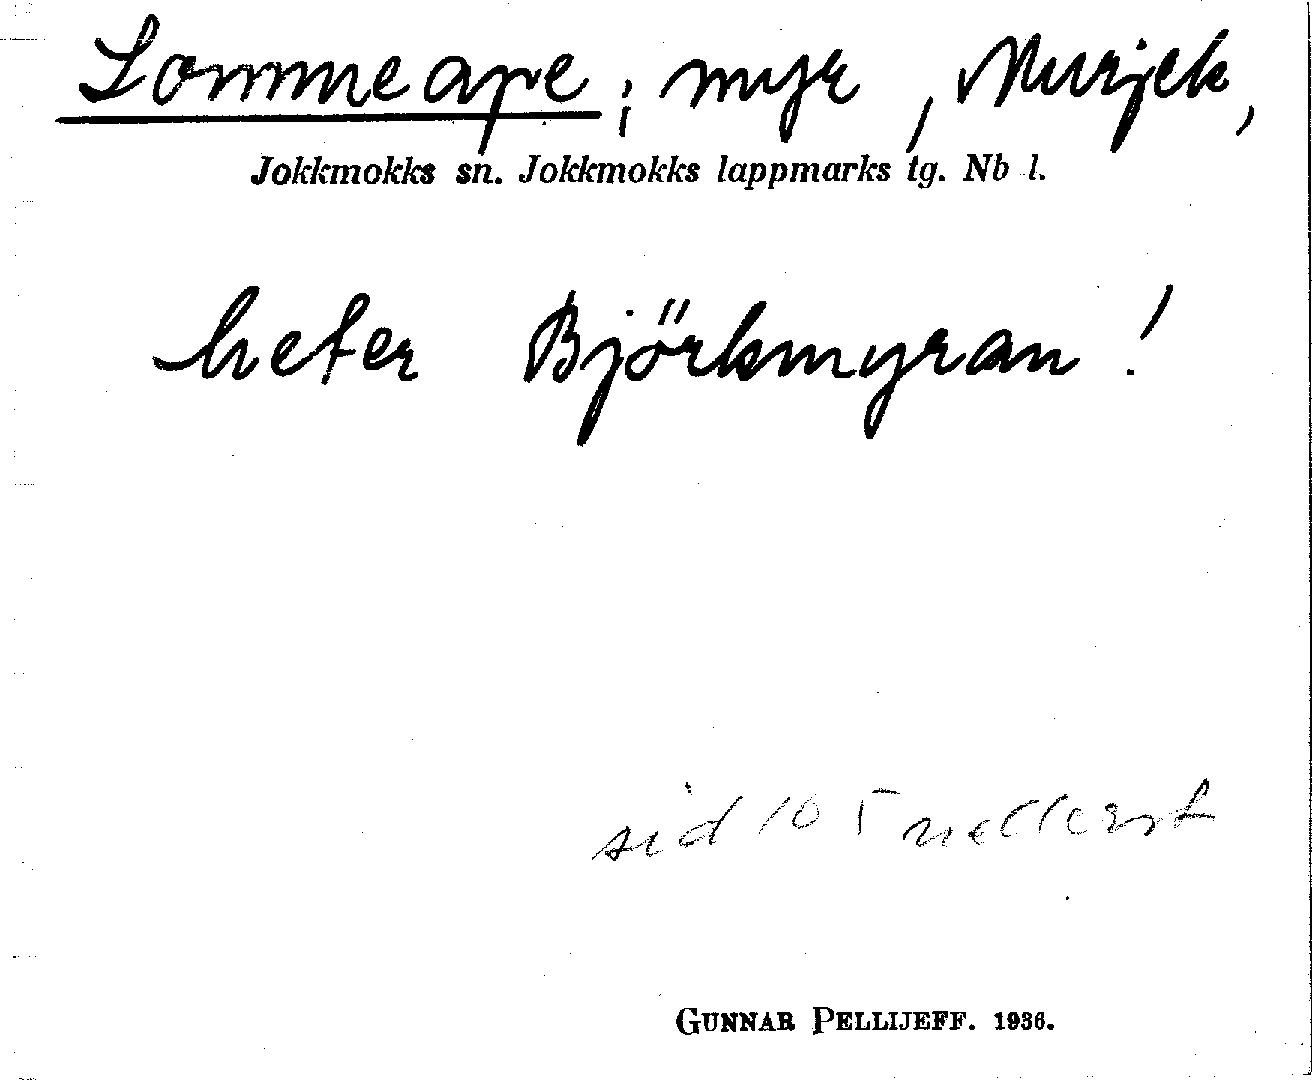 Lommeape; myr, Murjek,
Jokkmokks sn. Jokkmokks lappmarks tg. Nb l.
heter Björkmyran!
sid 105 nederst
GUNNAR PELLIJEFF. 1936.